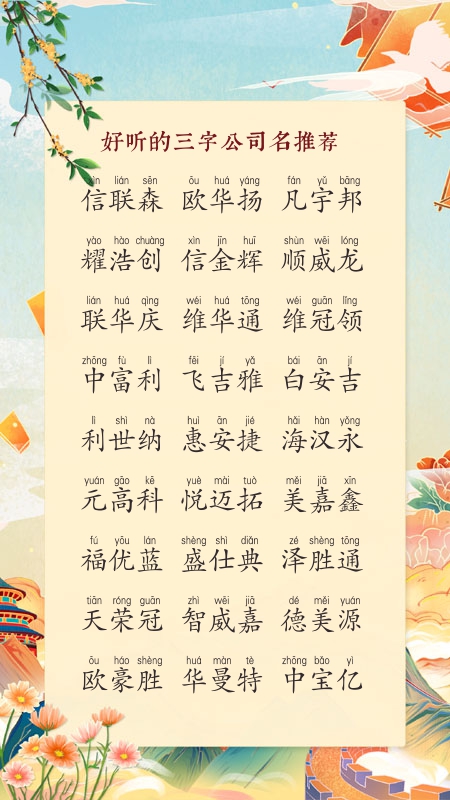 好听的三字公司名推荐
xìn lián sēn ōu huá yáng fán yǔ bāng
信联森 欧华扬 凡宇邦
yào hào chuàng xìn jīn huī shùn wēi lóng
耀浩创 信金辉 顺威龙
lián huá qìng wéi huá tōng wéi guān lǐng
联华庆 维华通 维冠领
zhōng fù lì fēi jí yǎ bái ān jí
中富利 飞吉雅 白安吉
lì shì nà huì ān jié hǎi hàn yǒng
利世纳 惠安捷 海汉永
yuán gāo kē yuè mài tuò měi jiā xīn
元高科 悦迈拓 美嘉鑫
fú yōu lán shèng shì diǎn zé shèng tōng
福优蓝 盛仕典 泽胜通
tiān róng guān zhì wēi jiā dé měi yuán
天荣冠 智威嘉 德美源
ōu háo shèng huá màn tè zhōng bǎo yì
欧豪胜 华曼特 中宝亿